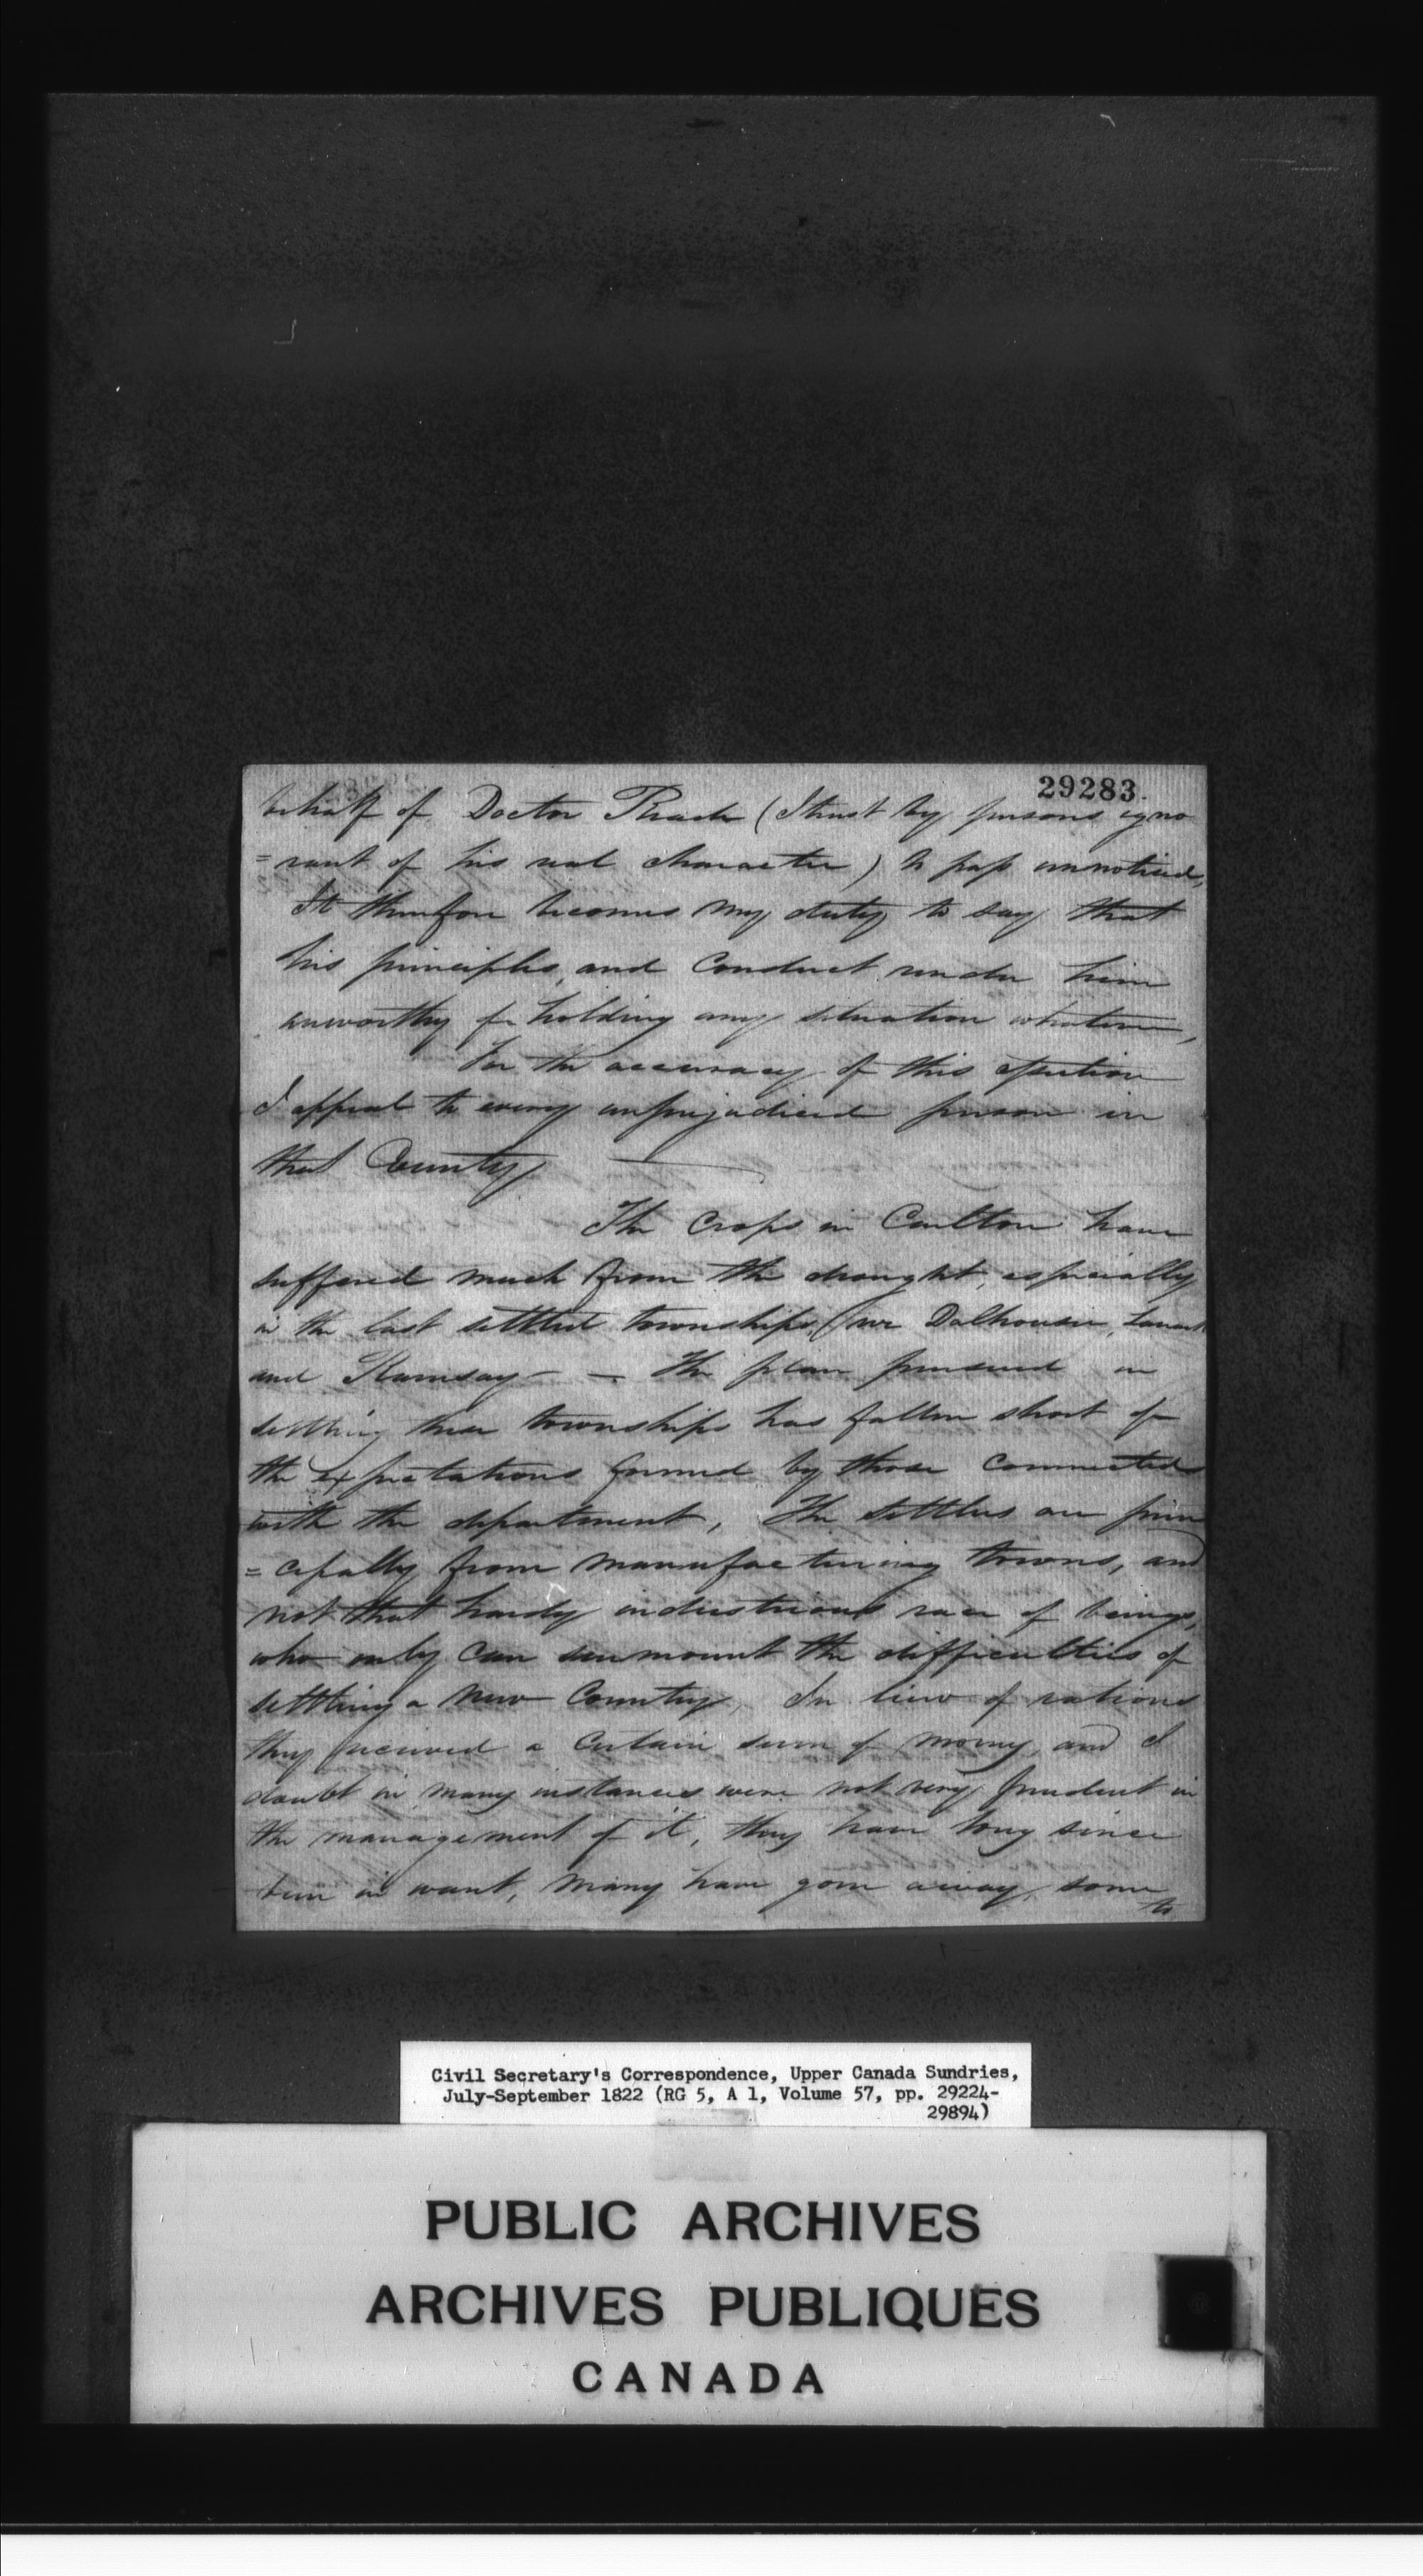 29283.
behalf of Doctor Thom (I trust by persons igno
=rant of his real character) to pass unnoticed,
It therefore becomes my duty to say that
his principles, and conduct render him
unworthy of holding any situation whatever,
For the accuracy of this assertion
I appeal to every unprejudiced person in
that County
The Crops in Carlton have
suffered much from the drought, especially
in the last settled townships, Dalhousie, Lanark
and Ramsay — The plan pursued in
settling these townships has fallen short of
the expectations formed by those connected
with the department, The Settlers are prin
=cipally from manufacturing towns, and
not that hardy industrious race of beings,
who only can surmount the difficulties of
settling a new Country, In lieu of rations
they received a certain sum of money, and I
doubt in many instances were not very prudent in
the management of it, they have long since
been in want, many have gone away, some
to
Civil Secretary's Correspondence, Upper Canada Sundries,
July-September 1822 (RG 5, A 1, Volume 57, pp. 29224-
29894)
PUBLIC ARCHIVES
ARCHIVES PUBLIQUES
CANADA